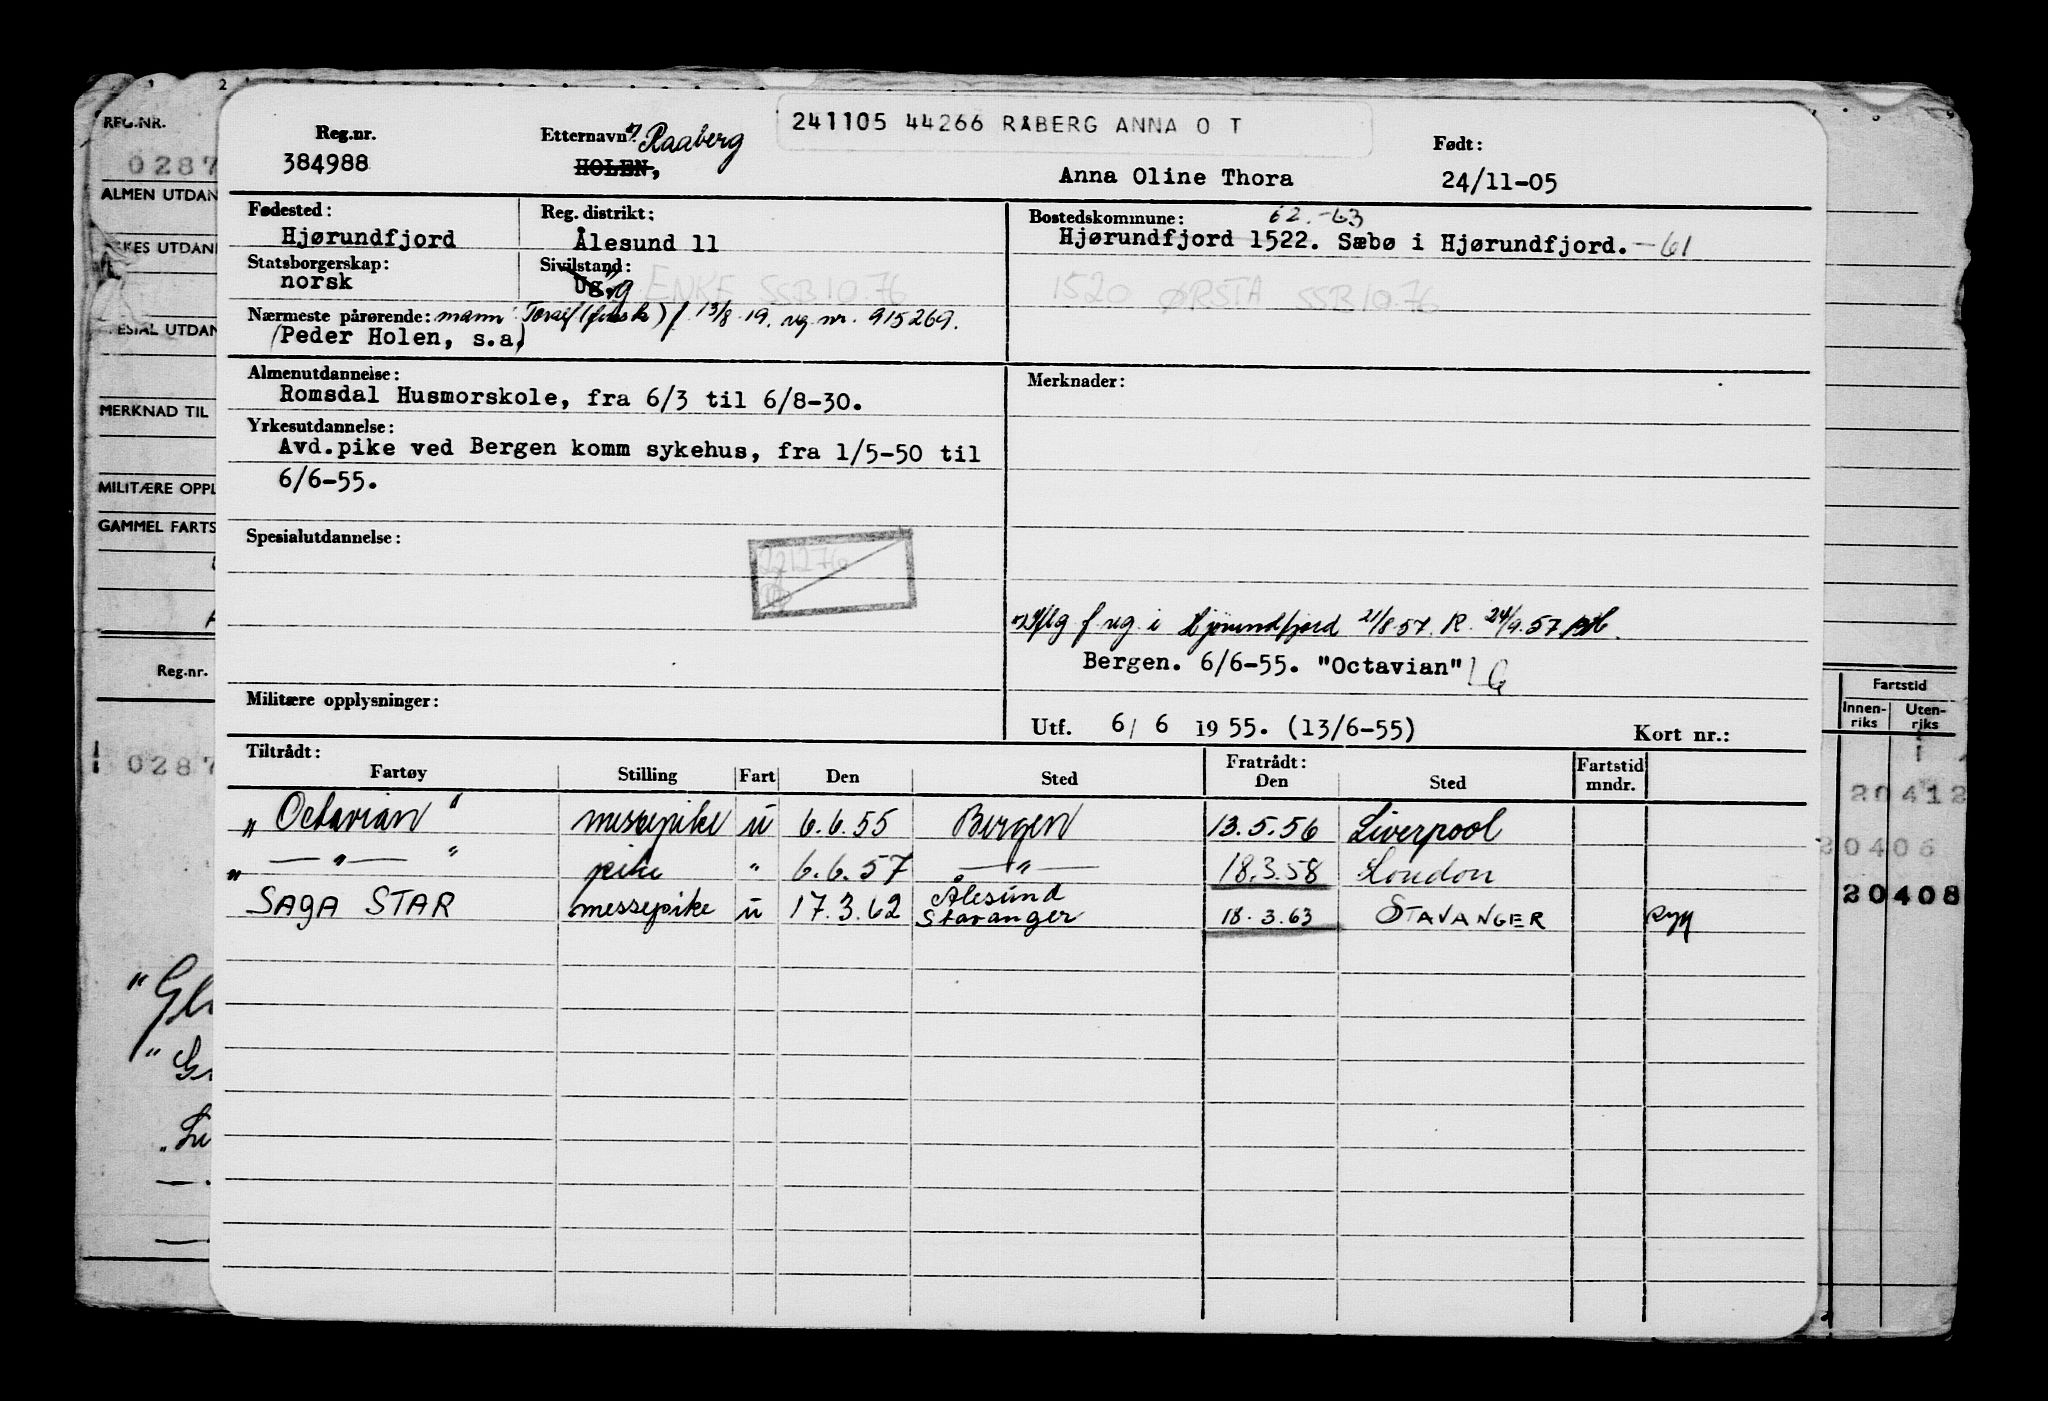 2
REG.NR.
0287
ALMEN UTDAN
KES UTDAN
ESIAL UTDAN
MERKNAD TIL
MILITÆRE OPPL
GAMMEL FARTS
Reg.nr.
0287
241105 44266 RÅBERG ANNA O T
Reg.nr. Etternavn: Raaberg Født:
384988 HOLEN, Anna Oline Thora 24/11-05
Fødested: Reg. distrikt: Bostedskommune: 62.-63
Hjørundfjord Ålesund 11 Hjørundfjord 1522. Sæbø i Hjørundfjord. -61
Statsborgerskap: Sivilstand:
norsk Ug. g ENKE SSB 10.76 1520 ØRSTA SSB 10.76
Nærmeste pårørende: mann: f. 13/8.19. reg nr. 915269.
(Peder Holen, s.a)
Almenutdannelse: Merknader:
Romsdal Husmorskole, fra 6/3 til 6/8-30.
Yrkesutdannelse:
Avd.pike ved Bergen komm sykehus, fra 1/5-50 til
6/6-55.
Spesialutdannelse:
221276
i Hjørundfjord 21/8.57. R. 24/9.57
Bergen. 6/6-55. "Octavian"
Militære opplysninger:
Utf. 6/ 6 1955. (13/6-55) Kort nr.:
Tiltrådt: Fratrådt: Fartstid
Fartøy Stilling Fart Den Sted Den Sted mndr.
"Octavian" messepike u 6.6.55 Bergen 13.5.56 Liverpool
" — " — " pike " 6.6.57 — " — 18.3.58 London
SAGA STAR messepike u 17.3.62 Ålesund Stavanger 18.3.63 STAVANGER
Fartstid
Innen-riks Uten-riks
20412
20406
20408